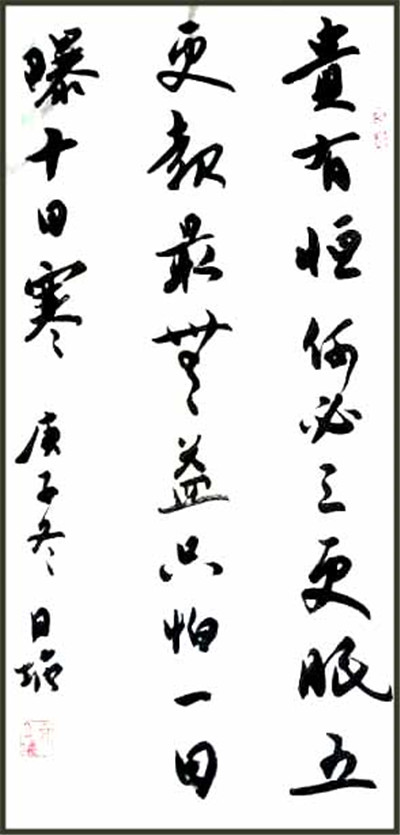 貴有恒何必三更眠五
更起最無益只怕一日
曝十日寒 庚子冬 日